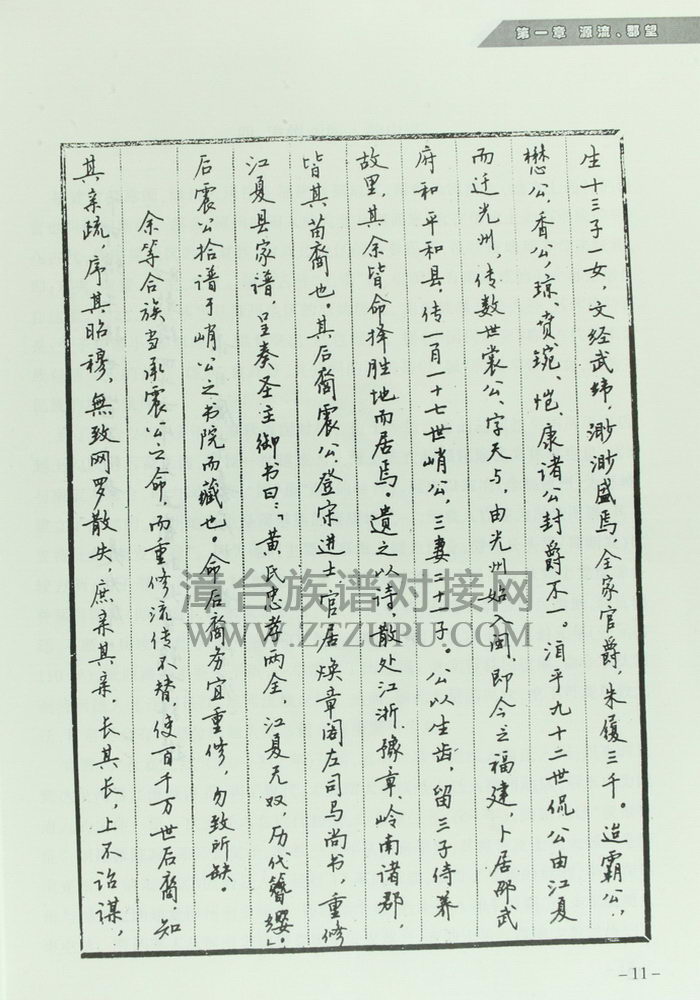 第一章 源流、郡望
生十三子一女，文经武纬，渺渺盛焉，全家官爵，朱履三千。迨霸公，
懋公，香公，琼、贲、琬、恺、康诸公封爵不一。洎乎九十二世侃公由江夏
而迁光州，传数世裳公，字天与，由光州始入闽，即今之福建，卜居邵武
府和平和县，传一百一十七世峭公，三妻二十一子。公以生齿，留三子侍养
故里，其余皆命择胜地而居焉。遗之以诗，散处江浙、豫章、岭南诸郡，
皆其苗裔也。其后裔震公，登宋进士，官居焕章阁左司马尚书，重修
江夏县家谱，呈奏圣主御书曰：「黄氏忠孝两全，江夏无双，历代簪缨」。
后震公拾谱于峭公之书院而藏也。命后裔务宜重修，勿致所缺。
余等合族当承震公之命，而重修流传不替，使百千万世后裔，知
其亲疏，序其昭穆，無致网罗散失，庶亲其亲，长其长，上不诒谋，
漳台族谱对接网
WWW.ZTZUPU.COM
-11-